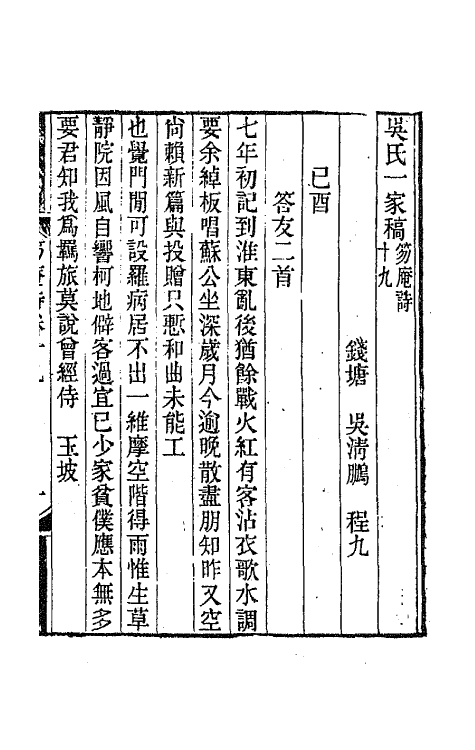 吳氏一家稿笏庵詩十九
錢塘 吳淸鵬 程九
己酉
答友二首
七年初記到淮東亂後猶餘戰火紅有客沾衣歌水調
要余綽板唱蘇公坐深歲月今逾晚散盡朋知昨又空
尙賴新篇與投贈只慙和曲未能工
也覺門閒可設羅病居不出一維摩空階得雨惟生草
靜院因風自響柯地僻客過宜已少家貧僕應本無多
要君知我爲羈旅莫說曾經侍 玉坡